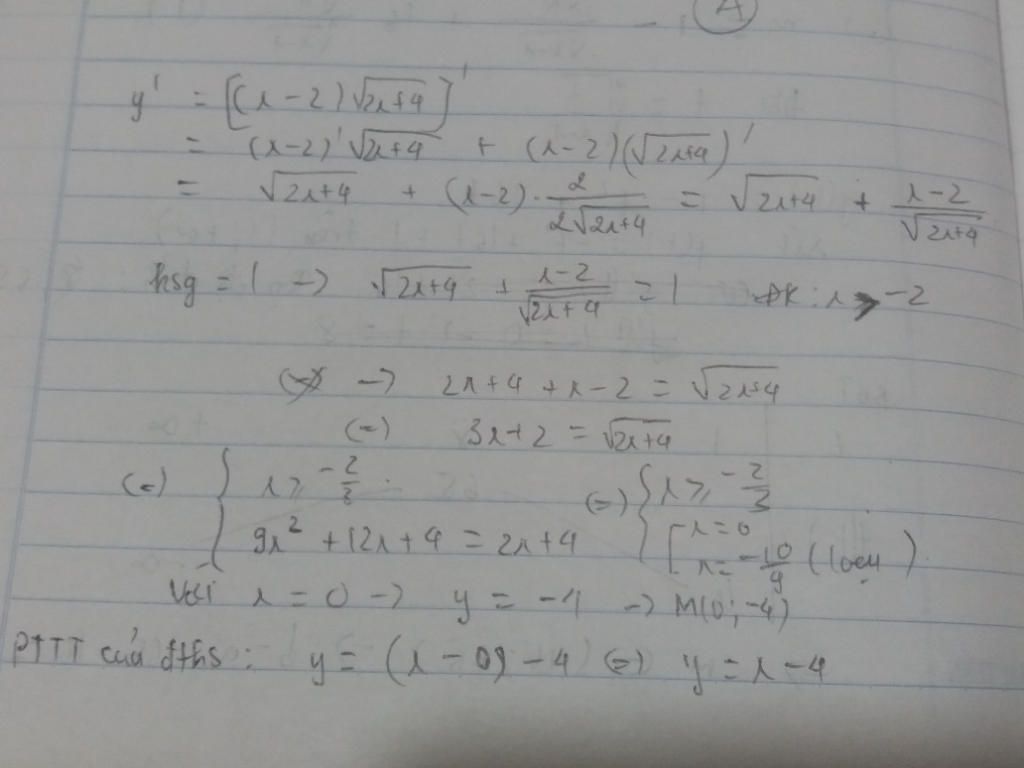 A
y' = [(x-2)√(2x+4)]'
= (x-2)'√(2x+4) + (x-2)(√(2x+4))'
= √(2x+4) + (x-2)·2/(2√(2x+4)) = √(2x+4) + (x-2)/√(2x+4)
hsg = 1 → √(2x+4) + (x-2)/√(2x+4) = 1 ĐK: x > -2
→ 2x+4 + x-2 = √(2x+4)
(=) 3x+2 = √(2x+4)
(=) { x ≥ -2/3 (=) { x ≥ -2/3
9x² + 12x + 4 = 2x+4 [ x = 0
x = -10/9 (loại)
Với x = 0 → y = -4 → M(0; -4)
PTTT của đths: y = (x - 0) - 4 (=) y = x - 4